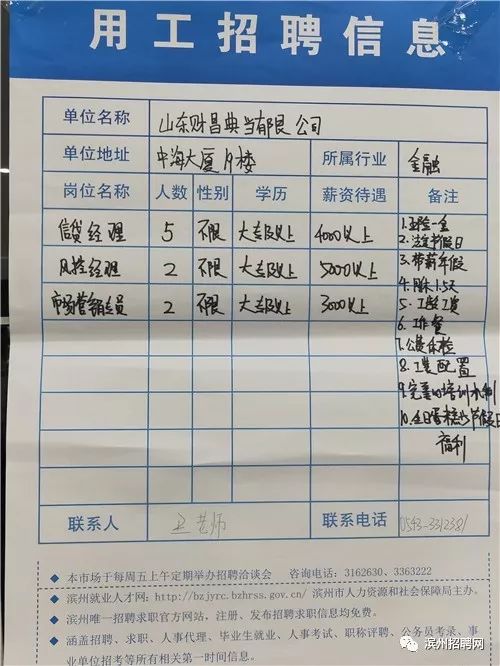 用工招聘信息
单位名称 山东财昌典当有限公司
单位地址 中海大厦 楼 所属行业 金融
岗位名称 人数 性别 学历 薪资待遇 备注
信贷经理 5 不限 大专及以上 4000以上
风控经理 2 不限 大专及以上 5000以上
市场营销专员 2 不限 大专及以上 3000以上
1.五险一金
2.法定节假日
3.带薪年假
4.周休1.5天
5.工龄工资
6.工作餐
7.公费体检
8.工装配置
9.完善的培训机制
10.生日蛋糕及节假日
福利
联系人 老师 联系电话 0543-3312381
◆ 本市场于每周五上午定期举办招聘洽谈会 咨询电话：3162630、3363222
◆ 滨州就业人才网：http://bzjyrc.bzhrss.gov.cn/ 滨州市人力资源和社会保障局主办。
◆ 滨州唯一招聘求职官方网站，注册、发布招聘求职信息均免费。
◆ 涵盖招聘、求职、人事代理、毕业生就业、人事考试、职称评聘、公务员考录、事
业单位招考等所有相关第一时间信息。
滨州招聘网